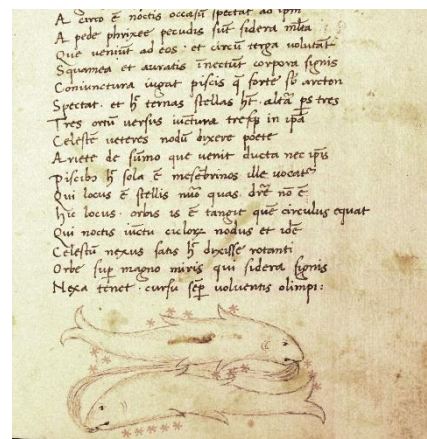 A circo ē noctis occasū spectat ad ipm̄
A pede phrixee pecudis sūt sidera mlta
Que veniūt ad eos · et circū terga volutāt
Squamea et auratis īnectūt corpora signis
Coniunctura iugat piscis q̄ forte sb arcton
Spectat · et h̄ ternas stellas ht̄ · altā ps tres
Tres ortū uersus iūctura tresqꝫ in ipā
Celestē ueteres nodū dixere poete
Ariete de sūmo que venit ducta nec ip̄is
Piscibꝫ h̄ sola ē mesēbrinos ille vocatʳ
Qui locus ē stellis quas · nō ē
locus · orbis is ē tangit quē circulus equat
Qui noctis iūctu ciclorꝫ nodus et idē
Celestū nexus satis h̄ dixisse rotanti
Orbe sup̄ magno miris qui sidera signis
Nexa tenet · cursu sēp̄ voluentis olimpi :